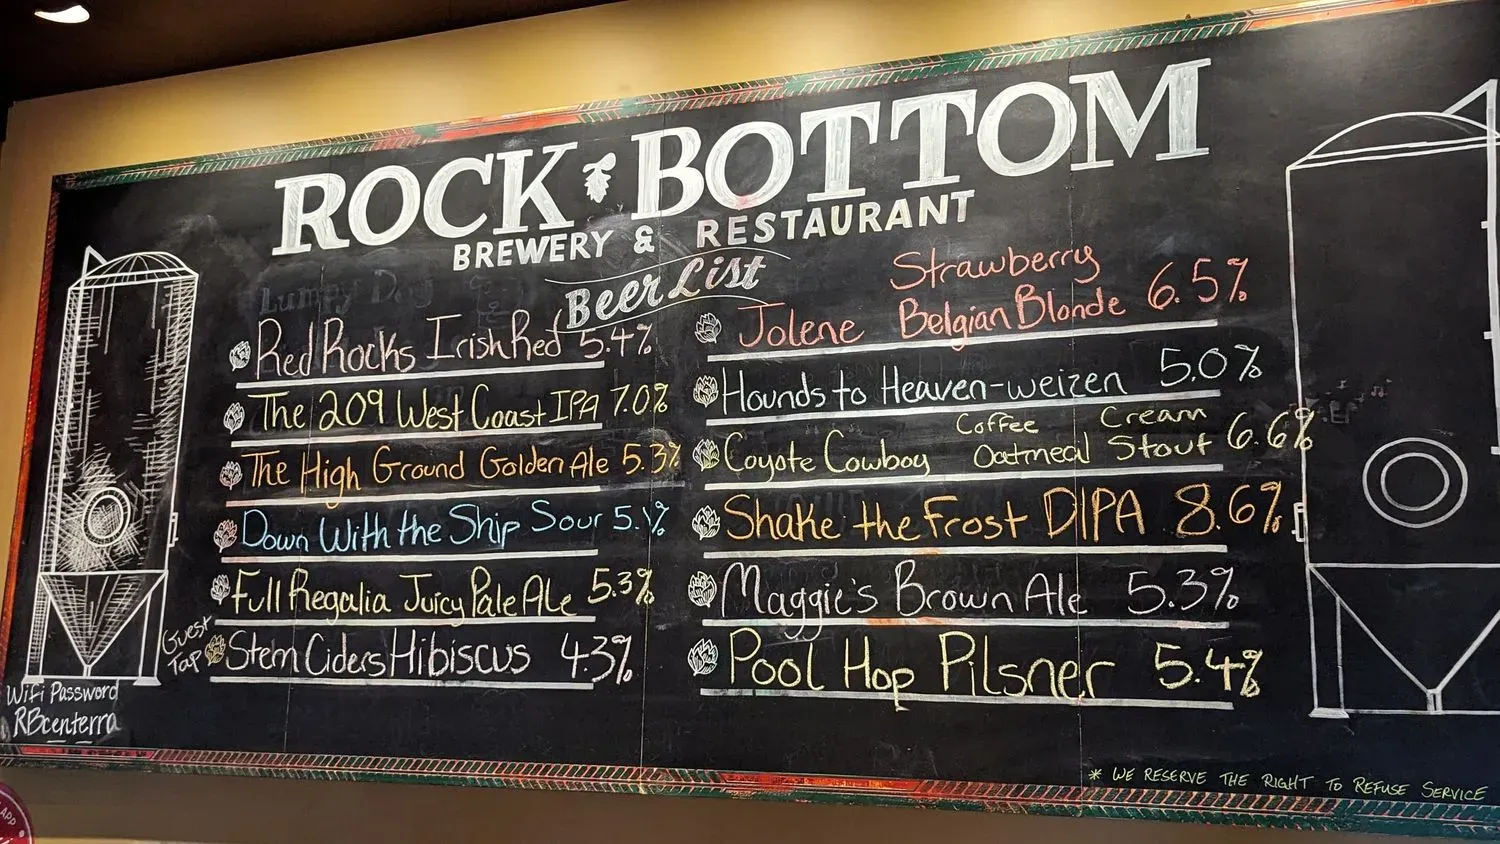 ROCK BOTTOM
BREWERY & RESTAURANT
Beer List
Lumpy Dog
Red Rocks Irish Red 5.4%
The 209 West Coast IPA 7.0%
The High Ground Golden Ale 5.3%
Down With the Ship Sour 5.1%
Full Regalia Juicy Pale Ale 5.3%
Guest
Tap
Stem Ciders Hibiscus 4.3%
WiFi Password
RBcenterra
Strawberry
Jolene Belgian Blonde 6.5%
Hounds to Heaven-weizen 5.0%
Coffee Cream
Coyote Cowboy Oatmeal Stout 6.6%
Shake the Frost DIPA 8.6%
Maggie's Brown Ale 5.3%
Pool Hop Pilsner 5.4%
* WE RESERVE THE RIGHT TO REFUSE SERVICE